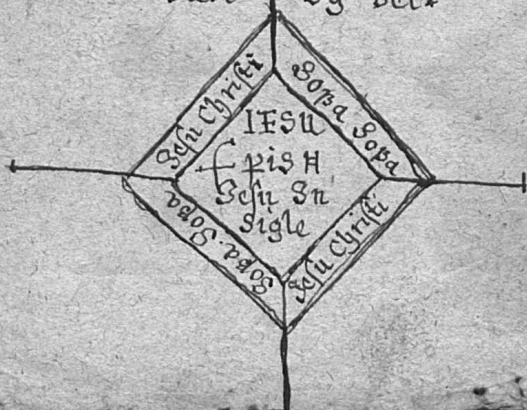 Jesu Christi
Sopa Sopa
IESU
pis H
Jesu In
Sigle
Sopa. Sopa
Jesu Christi